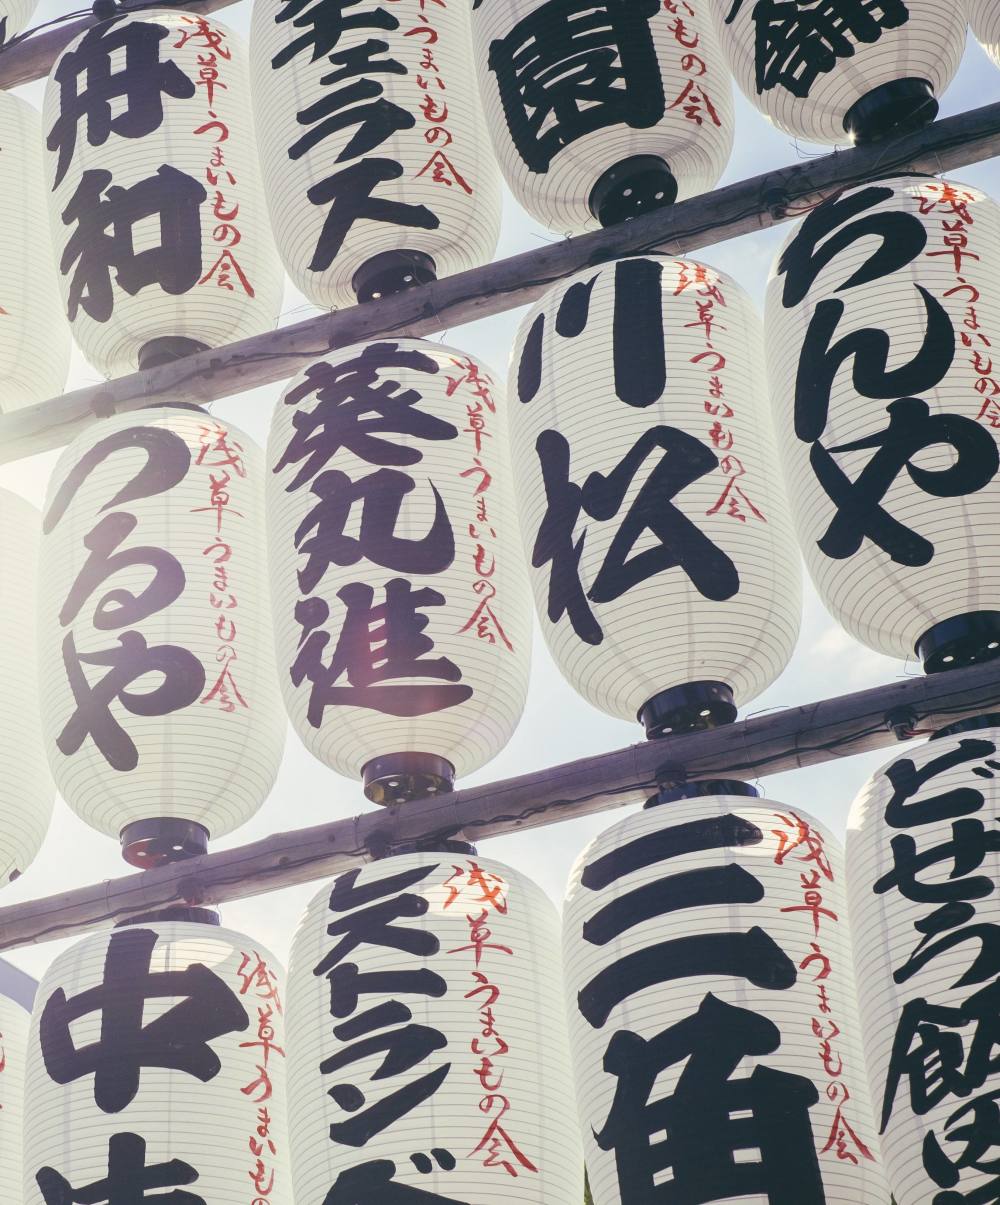 浅草うまいもの会
舟和
うまいもの会
ラス
いもの会
園
浅草うまいもの会
つるや
浅草うまいもの会
葵丸進
浅草うまいもの会
川松
浅草うまいもの会
ちんや
浅草うまいも
中
浅草うまいもの会
ストラン
浅草うまいもの会
三角
どぜう飯田